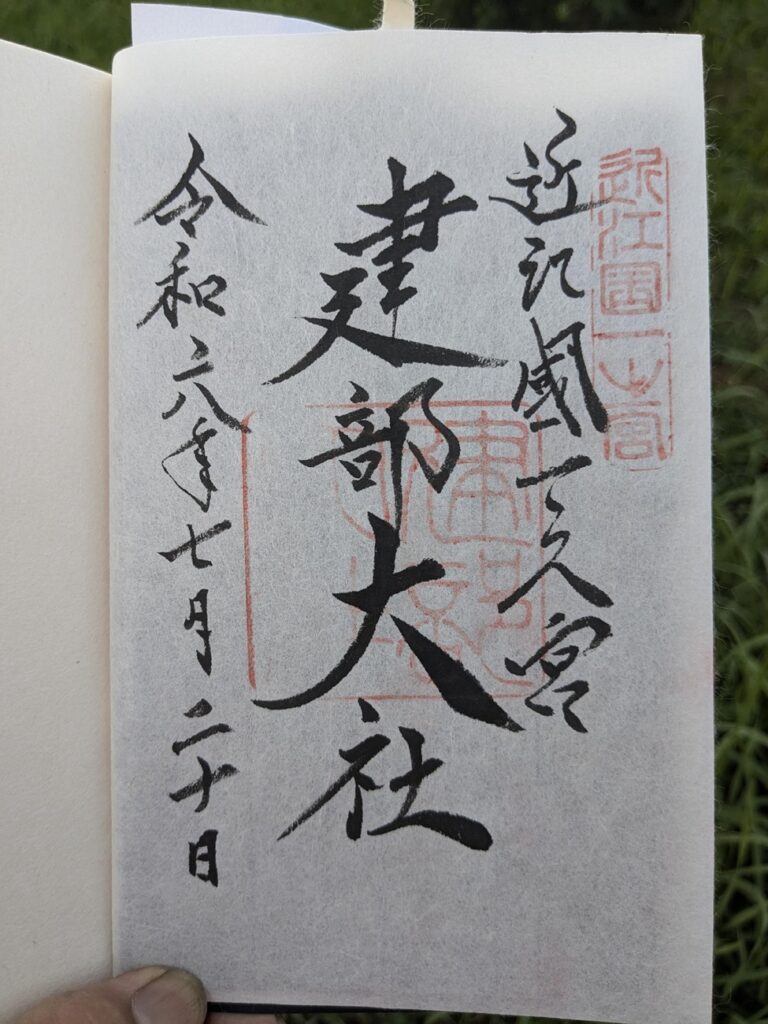 近江國一之宮
近江國一之宮
建部大社
令和六年七月二十日